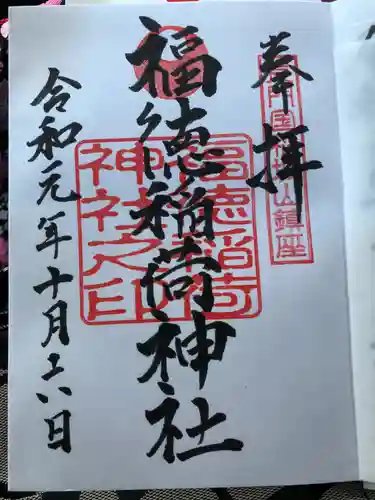 奉拝
山鎮座
福徳稲荷神社
福徳稲荷
神社之印
令和元年十月十六日